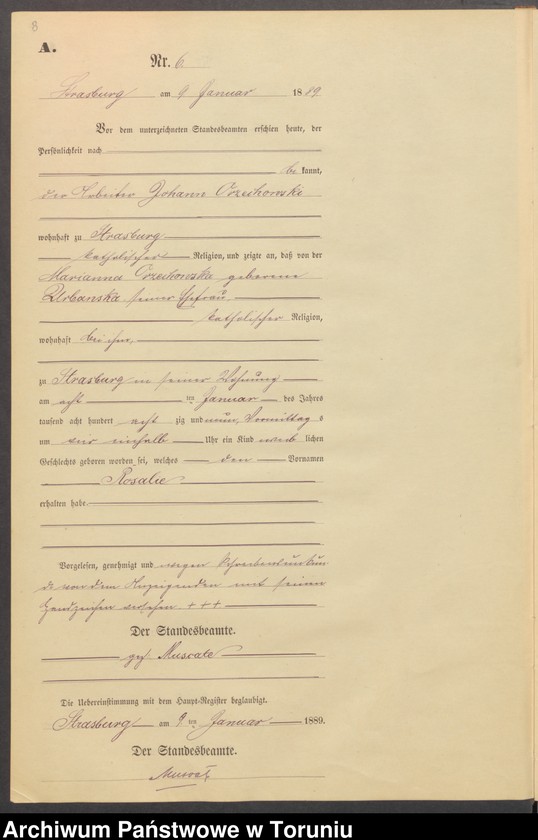 8
A.
Nr. 6
Strasburg am 9 Januar 1889
Vor dem unterzeichneten Standesbeamten erschien heute, der
Persönlichkeit nach
be kannt,
der Arbeiter Johann Orzechowski
wohnhaft zu Strasburg
katholischer Religion, und zeigte an, daß von der
Marianna Orzechowska geborene
Urbanska seiner Ehefrau
katholischer Religion,
wohnhaft bei ihm,
zu Strasburg in seiner Wohnung
am acht ten Januar des Jahres
tausend acht hundert acht zig und neun, Vormittag s
um ein halb Uhr ein Kind weib lichen
Geschlechts geboren worden sei, welches den Vornamen
Rosalie
erhalten habe.
Vorgelesen, genehmigt und wegen Schreibensunkun
de von dem Anzeigenden mit seinen
Handzeichen versehen + + +
Der Standesbeamte.
gez.
Die Uebereinstimmung mit dem Haupt-Register beglaubigt.
Strasburg am 9 ten Januar 1889.
Der Standesbeamte.
Archiwum Państwowe w Toruniu